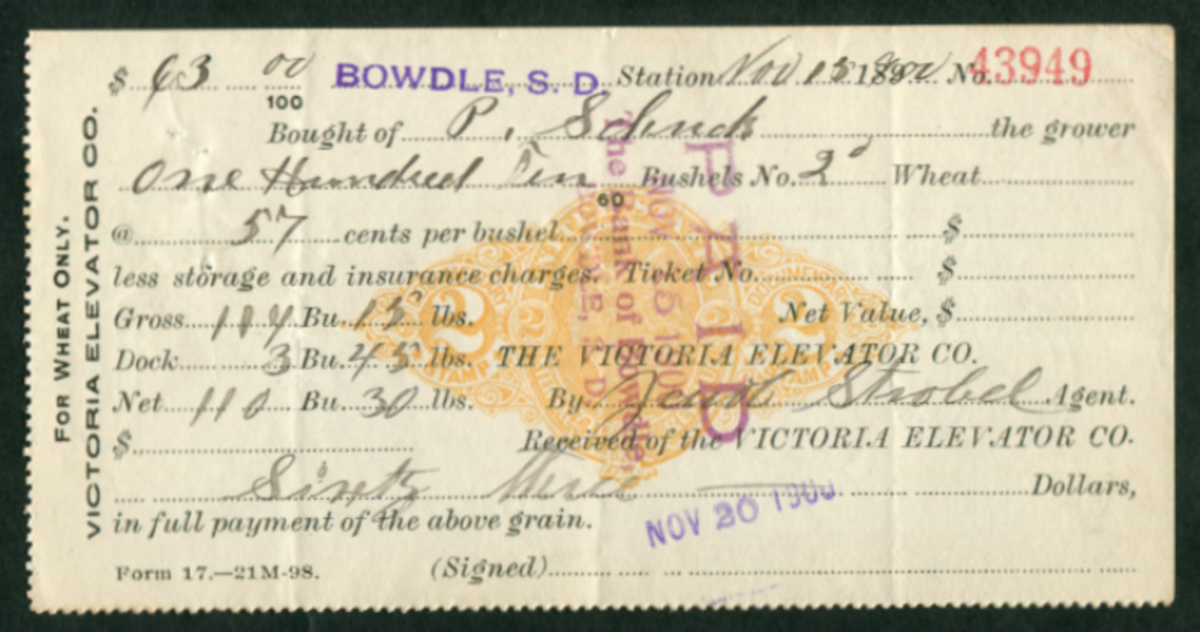 $ 63 00/100 BOWDLE, S. D. Station Nov 15 1900 No. 43949
Bought of P. Schuck the grower
One Hundred Ten /60 Bushels No. 2 Wheat
@ 57 cents per bushel $
less storage and insurance charges. Ticket No. $
Gross 114 Bu. 15 lbs. Net Value, $
Dock 3 Bu. 45 lbs. THE VICTORIA ELEVATOR CO.
Net 110 Bu. 30 lbs. By Jacob Strobel Agent.
$ Received of the VICTORIA ELEVATOR CO.
Sixty three Dollars,
in full payment of the above grain.
NOV 20 1900
Form 17.—21M-98. (Signed)
FOR WHEAT ONLY.
VICTORIA ELEVATOR CO.
PAID
NOV 15 1900
The Bank of Bowdle,
BOWDLE, S. D.
2 2 2 2